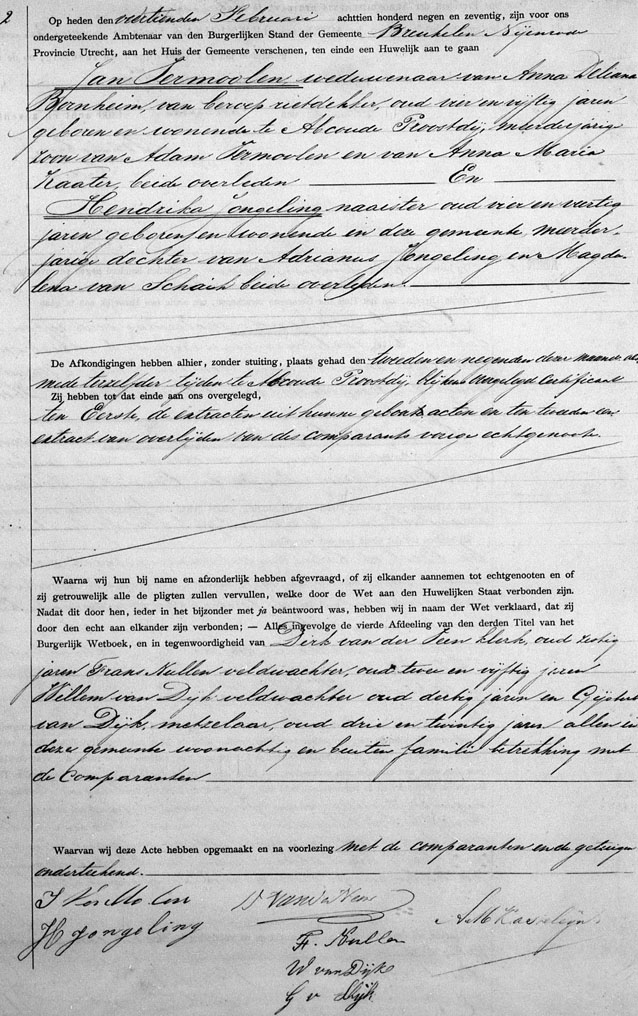 2
Op heden den veertienden Februari achttien honderd negen en zeventig, zijn voor ons
ondergeteekende Ambtenaar van den Burgerlijken Stand der Gemeente Breukelen Nijenrode
Provincie Utrecht, aan het Huis der Gemeente verschenen, ten einde een Huwelijk aan te gaan
Jan Vermoolen weduwenaar van Anna
Bornheim, van beroep rietdekker, oud vier en vijftig jaren
geboren en wonende te Abcoude Proostdij, meerderjarige
zoon van Adam Vermoolen en van Anna Maria
Kaater, beide overleden En
Hendrika Jongeling naaister oud vier en veertig
jaren geboren en wonende in deze gemeente, meerder-
jarige dochter van Adrianus Jongeling en Magda
lena van Schaik beide overleden.
De Afkondigingen hebben alhier, zonder stuiting, plaats gehad den tweeden en negenden dezer maand
mede terzelfder tijden te Abcoude Proostdij, blijkens overgelegd certificaat
Zij hebben tot dat einde aan ons overgelegd,
ten Eerste, de extracten uit hunne geboorte acten en ten tweeden een
extract van overlijden van des comparants vorige echtgenoote.
Waarna wij hun bij name en afzonderlijk hebben afgevraagd, of zij elkander aannemen tot echtgenooten en of
zij getrouwelijk alle de pligten zullen vervullen, welke door de Wet aan den Huwelijken Staat verbonden zijn.
Nadat dit door hen, ieder in het bijzonder met ja beantwoord was, hebben wij in naam der Wet verklaard, dat zij
door den echt aan elkander zijn verbonden; — Alles ingevolge de vierde Afdeeling van den derden Titel van het
Burgerlijk Wetboek, en in tegenwoordigheid van Dirk van der Veen klerk, oud zestig
jaren Frans Nullen veldwachter, oud twee en vijftig jaren
Willem van Dijk veldwachter oud dertig jaren en Gijsbert
van Dijk, metselaar, oud drie en twintig jaren allen in
deze gemeente woonachtig en buiten familie betrekking met
de Comparanten
Waarvan wij deze Acte hebben opgemaakt en na voorlezing met de comparanten en de getuigen
onderteekend.
J Ver Molen
D VanderVeen
H Jongeling
A M Kasteleijn
F. Nullen
W van Dijk
G v Dijk